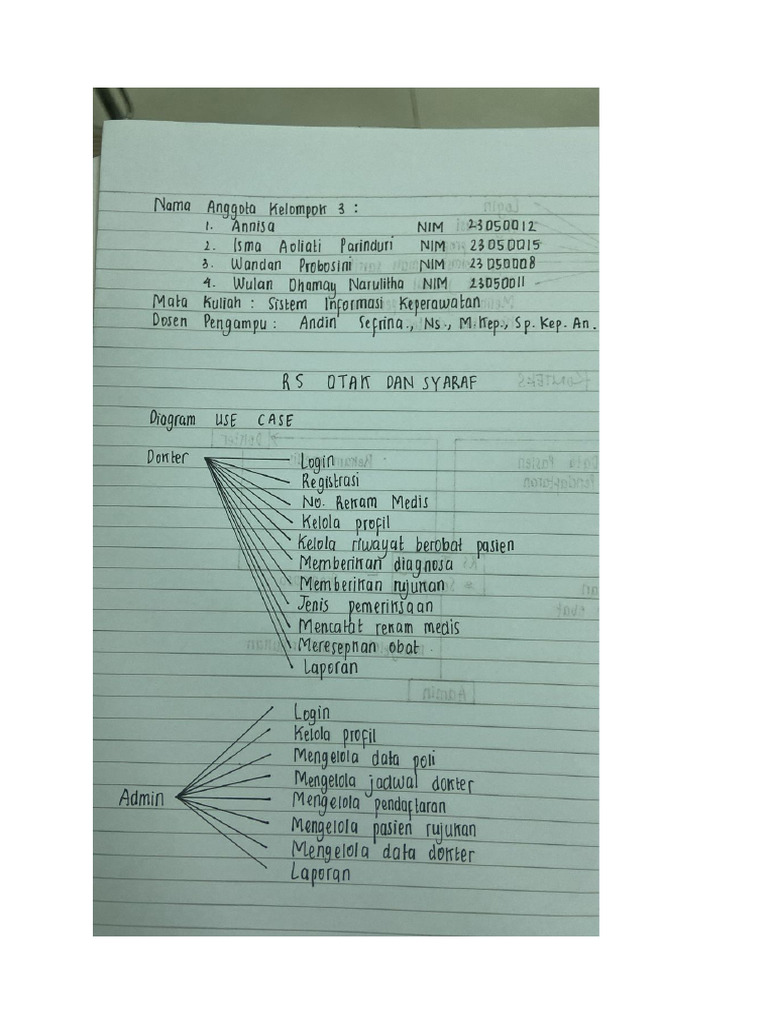 Nama Anggota Kelompok 3 :
1. Annisa NIM 23050012
2. Isma Aoliati Parinduri NIM 23050015
3. Wandan Probosini NIM 23050008
4. Wulan Dhamay Narulitha NIM 23050011
Mata Kuliah : Sistem Informasi Keperawatan
Dosen Pengampu : Andin Sefrina., Ns., M.Kep., Sp. Kep. An.
RS OTAK DAN SYARAF
Diagram USE CASE
Dokter
Login
Registrasi
No. Rekam Medis
Kelola profil
Kelola riwayat berobat pasien
Memberikan diagnosa
Memberikan rujukan
Jenis pemeriksaan
Mencatat rekam medis
Meresepkan obat
Laporan
Admin
Login
Kelola profil
Mengelola data poli
Mengelola jadwal dokter
Mengelola pendaftaran
Mengelola pasien rujukan
Mengelola data dokter
Laporan